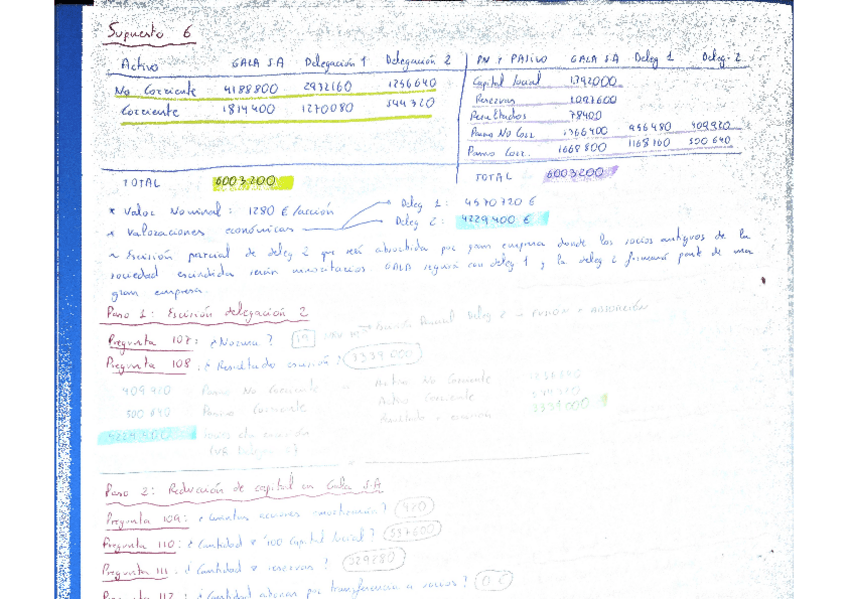 Supuesto 6
Activo GALA S.A Delegación 1 Delegación 2 PN y PASIVO GALA S.A Deleg 1 Deleg. 2
No Corriente 4188800 2932160 1256640 Capital Social 1792000
Corriente 1814400 1270080 544320 Reservas
Resultados 78400
Pasivo No Corr. 1366400 956480 409920
Pasivo Corr. 1668800 1168160 500640
TOTAL 6003200 TOTAL 6003200
* Valor Nominal: 1280 €/acción Deleg 1: 4570720 €
* Valoraciones económicas Deleg 2: 4229400 €
~ Escisión parcial de deleg 2 que será absorbida por gran empresa donde los socios antiguos de la
sociedad escindida serán minoritarios. GALA seguirá con deleg 1 y la deleg 2 formará parte de una
gran empresa.
Paso 1: Escisión delegación 2
Pregunta 107: ¿Norma? 19 Deleg 2 → FUSION + ABSORCIÓN
Pregunta 108: ¿Resultado escisión? 3339000
409920 Pasivo No Corriente a Activo No Corriente 1256640
500640 Pasivo Corriente Activo Corriente 544320
4229400 socios cta escisión Resultado escisión 3339000
Paso 2: Reducción de capital en Gala S.A
Pregunta 109: ¿Cuántas acciones 420
Pregunta 110: ¿Cantidad a 100 Capital Social? 537600
Pregunta 111: ¿Cantidad a reservas? 329280
Pregunta 112: ¿Cantidad por transferencia a socios? 0 €